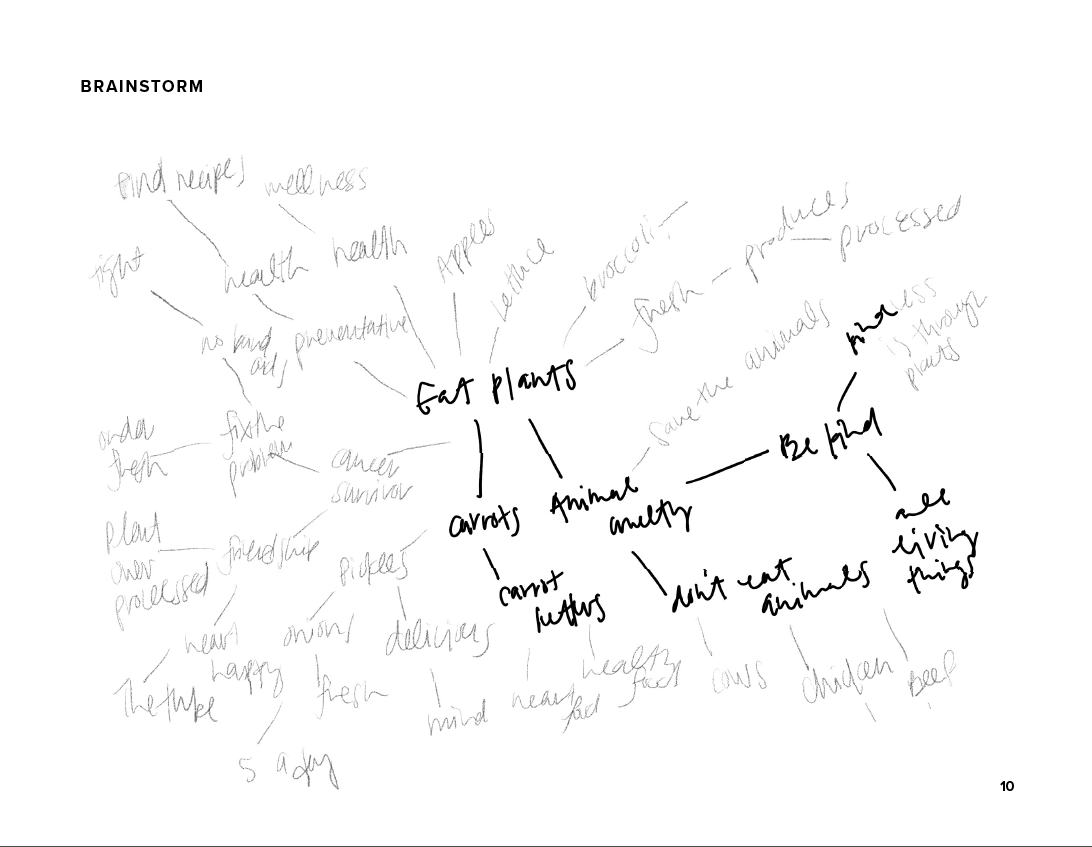 BRAINSTORM
find recipes
wellness
health
health
Apples
lettuce
broccoli
produces
processed
fresh
no band
aid,
preventative
Eat plants
save the animals
kindness
is through
plants
fix the
problem
fresh
cancer
survivor
Be kind
Animal
cruelty
carrots
all
living
things
plant
over
processed
friendship
pickles
carrot
don't eat
animals
heart
happy
onions
delicious
healthy
food
cows
chicken
Beef
fresh
mind
5 a day
10